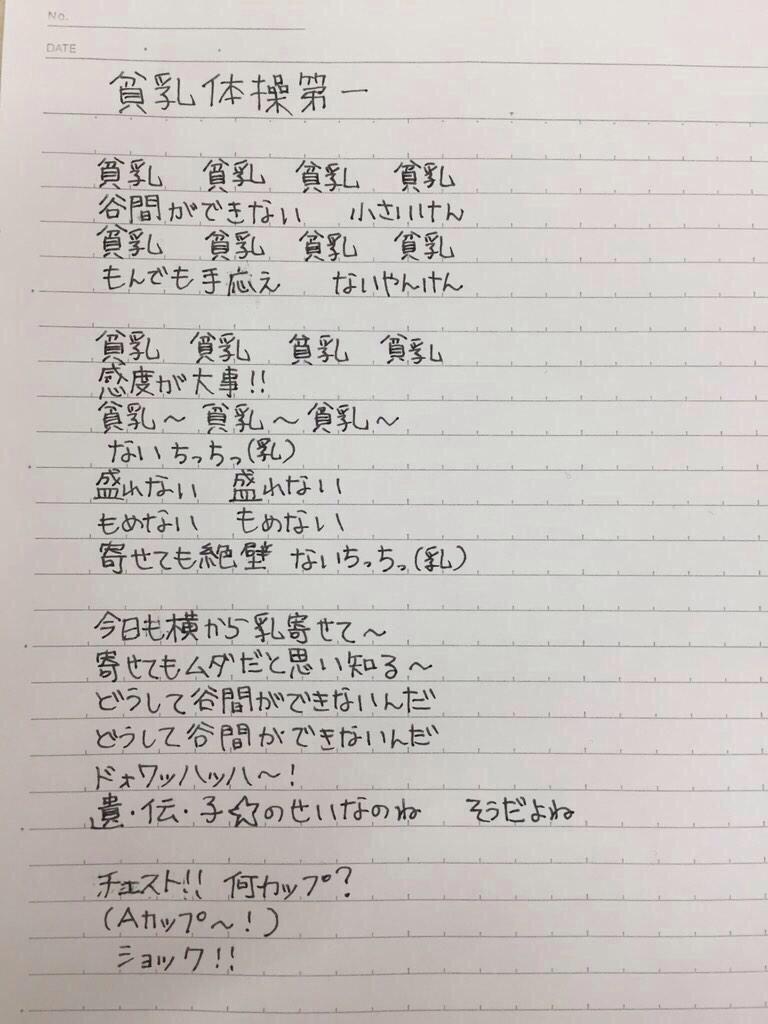 No.
DATE
貧乳体操第一
貧乳 貧乳 貧乳 貧乳
谷間ができない 小さいけん
貧乳 貧乳 貧乳 貧乳
もんでも手応え ないやんけん
貧乳 貧乳 貧乳 貧乳
感度が大事!!
貧乳～貧乳～貧乳～
ないちっちっ(乳)
盛れない 盛れない
もめない もめない
寄せても絶壁 ないちっちっ(乳)
今日も横から乳寄せて～
寄せてもムダだと思い知る～
どうして谷間ができないんだ
どうして谷間ができないんだ
ドォワッハッハ～!
遺・伝・子☆のせいなのね そうだよね
チェスト!! 何カップ?
(Aカップ～!)
ショック!!